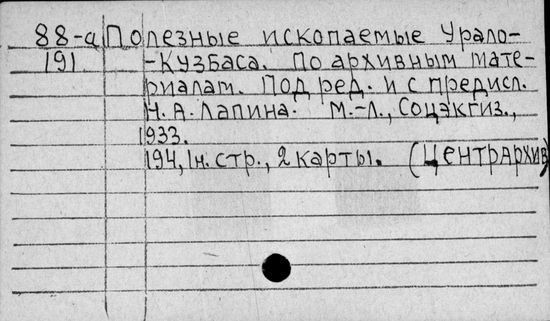 88-а Полезные ископаемые Урало-
191 -Кузбаса. По архивным мате-
риалам. Под ред. и с предисл.
Н. А. Лапина. М.-Л., Соцэкгиз.,
1933.
194, 1н. стр., 2 карты. (Центрархив)